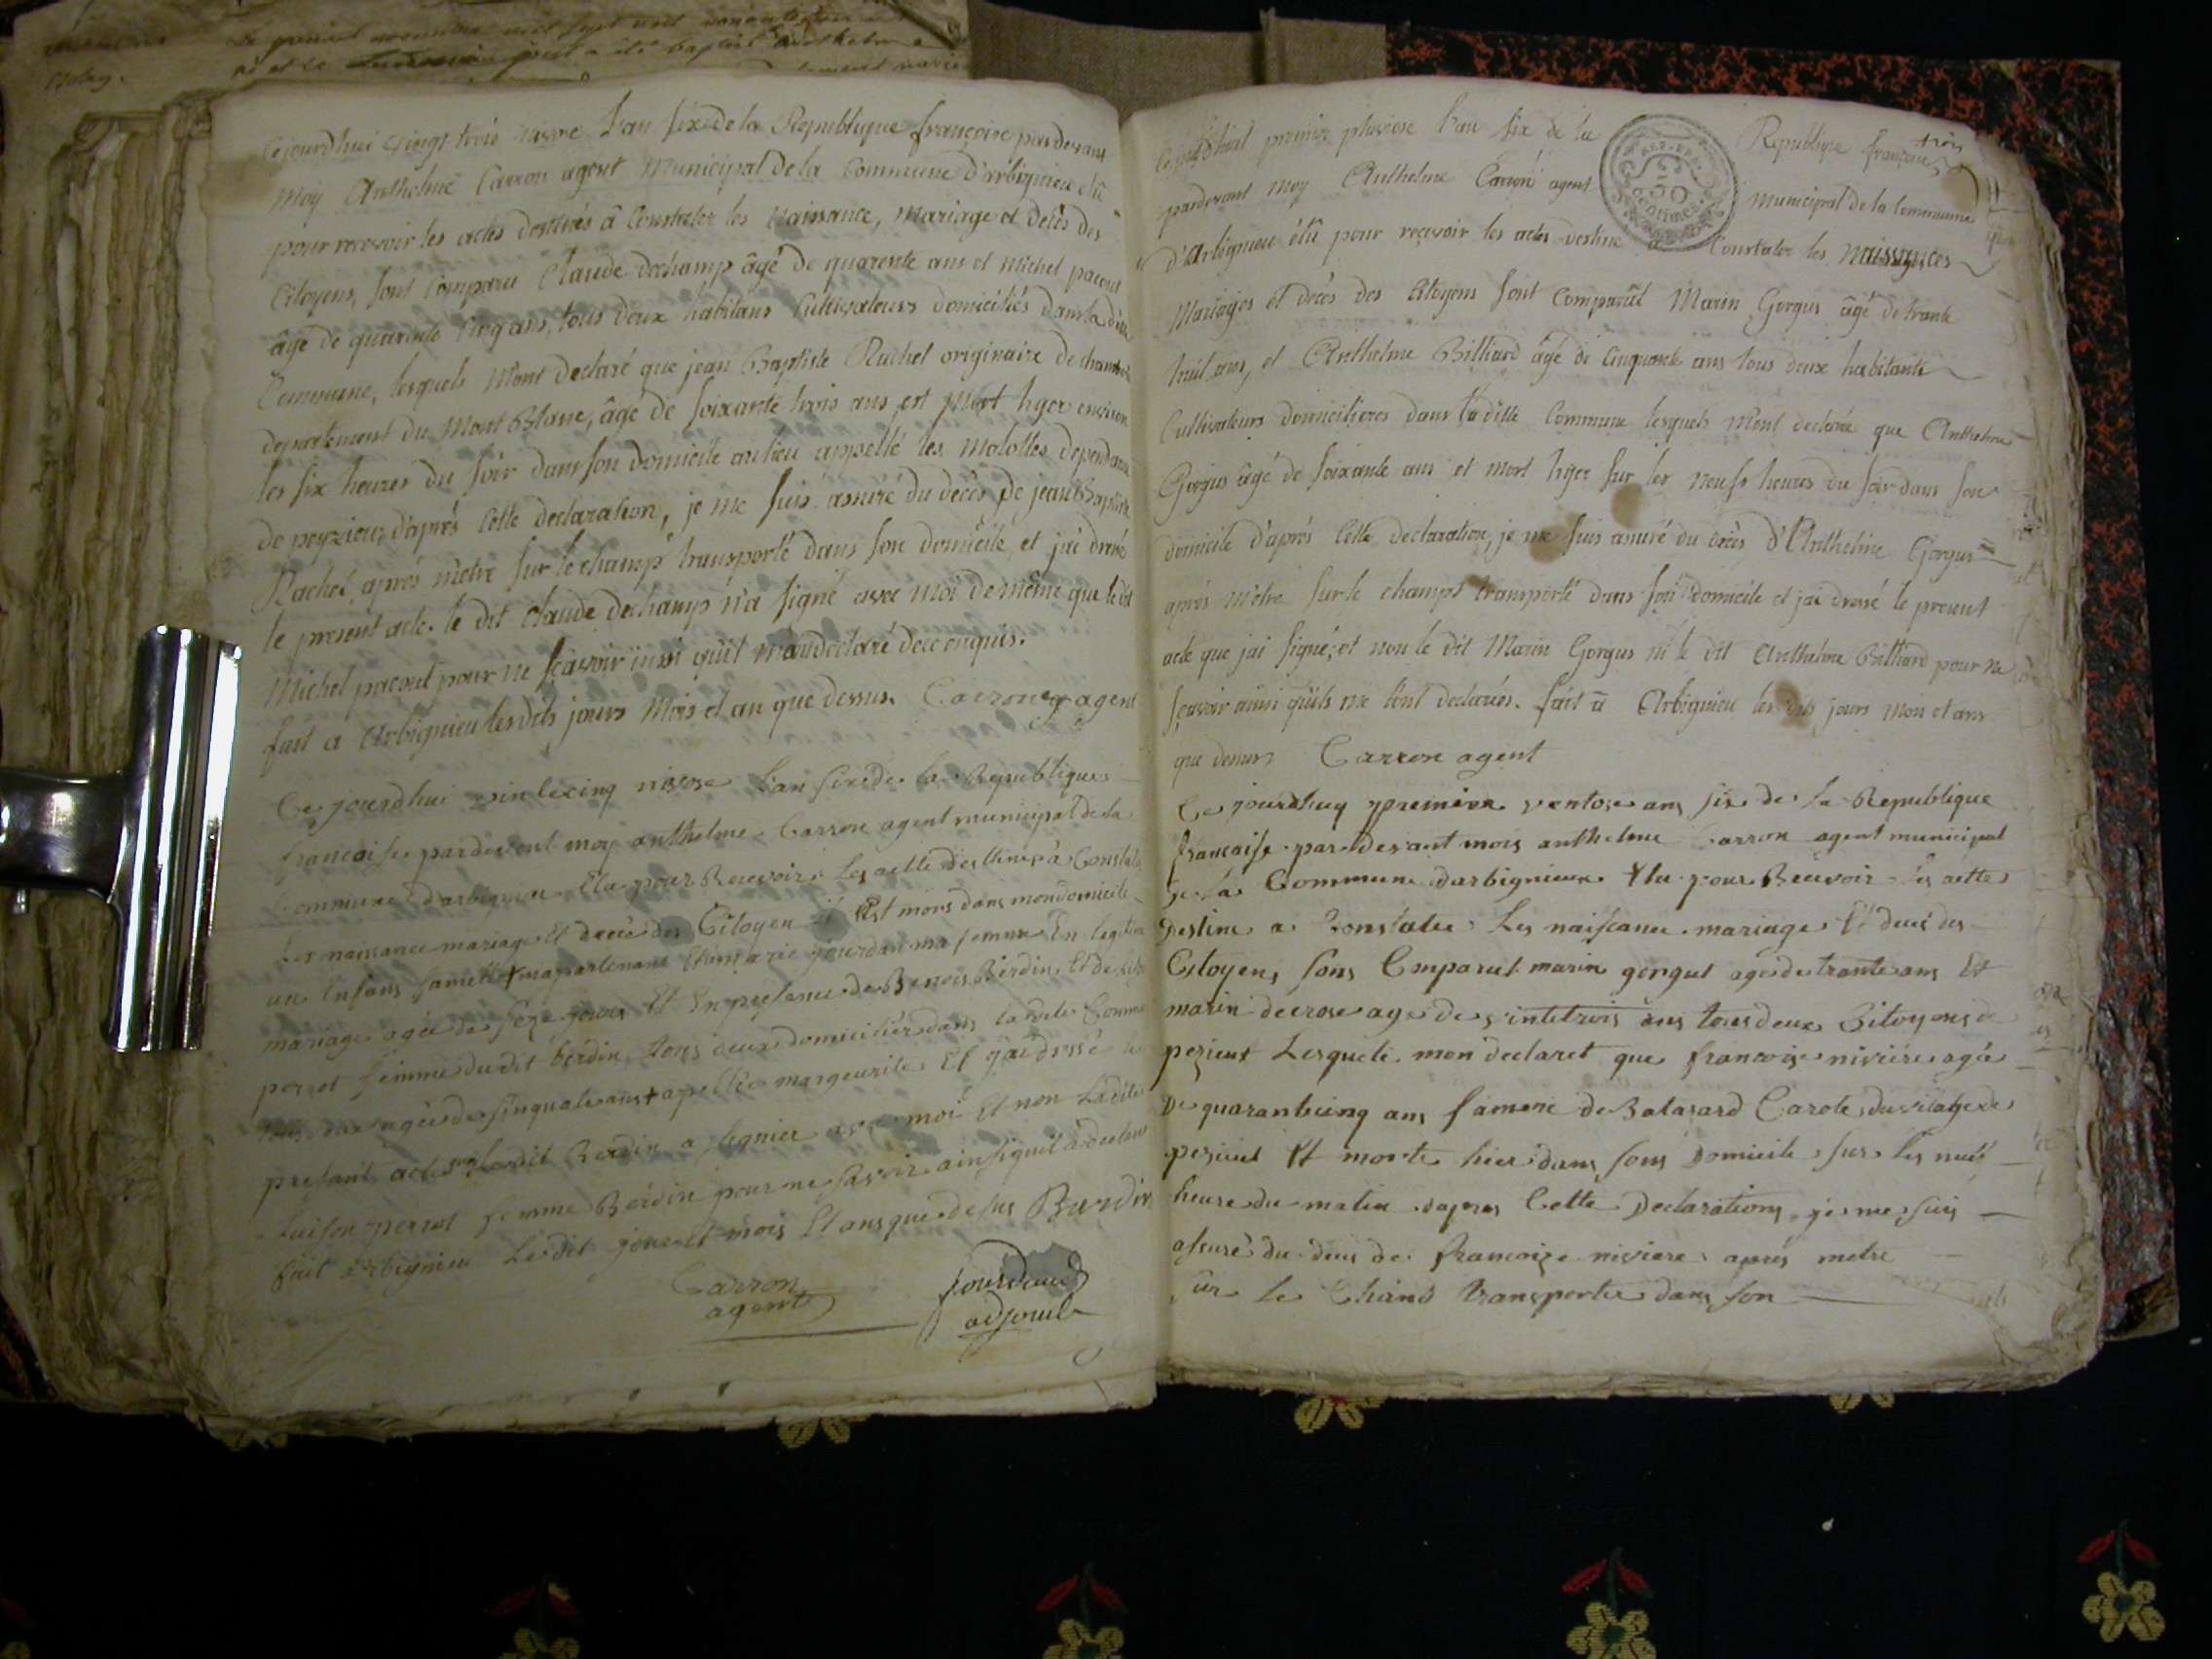 Cejourdhui vingt trois nivose l'an six de la Republique françoise pardevant
moy Anthelme Carron agent Municipal de la Commune d'arbignieu élu
pour recevoir les actes destinés â Constater les Naissance, Mariage et decès des
Citoyens, sont Comparu Claude dechamp âgé de quarente ans et Michel pacout
âgé de quarente cinq ans, tous deux habitans Cultivateurs domiciliés dans la ditte
Commune, lesquels M'ont declaré que jean Baptiste Rachel originaire de
departement du Mont Blanc, âgé de soixante trois ans est Mort hyer environ
les six heures du soir dans son domicile au lieu appellé les Molottes dependance
de peyzieu, d'après Cette declaration, je me suis assuré du decès de jean Baptiste
Rachel après m'etre sur le champ transporté dans son domicile, et j'ai dressé
le present acte. le dit Claude dechamp n'a signé avec Moi de même que le dit
Michel pacout pour ne sçavoir insi qu'il m'ont declaré de ce enquis.
fait a Arbignieu les dits jours Mois et an que dessus. Carron agent
Ce jourdhui vin lecinq nivose l'an six de la Republique
francoise pardevent moy anthelme Carron agent municipal de la
Commune d'arbignieu Elu pour Recevoir Les actte desttines à Constate
Les naissance mariage Et decès des Citoyen il Est mors dans mon domicile
un Enfans famelle + mapartenant Et marie jourdan ma femme En legitime
mariage agée de seze jours Et En presence de Benois Berdin Et de
perrot femme du dit berdin tous deux domiciliés dans la dite Comme
tous deux agés de sinquate ans + apellée margeurite Et j'ai dressé le
presant acte Le dit Berdin a signier avec moi Et non La dite
Luison perrot femme Berdin pour ne savoir ainsi quil a declaré
fait arbignieu Le dit jour Et mois Et ans que desus Burdin
Carron
agent
Jourdan
adjoint
trois
premier pluviose l'an six de la Republique françoise
pardevant Moy Anthelme Carron agent Municipal de la Commune
REP. FRA.
50
Centimes
d'Arbignieu élû pour reçevoir les actes destine a Constater les Naissances
Mariages et decès des Citoyens sont Comparût Marin Gorgus âgé de trante
huit ans, et Anthelme Billiard âgé de Cinquante ans tous deux habitants
Cultivateurs domicilieres dans la ditte Commune lesquels M'ont declarée que Anthelme
Gorgus âgé de soixante ans et mort hyer sur les neufs heures du soir dans son
domicile d'après Cette declaration, je me suis assuré du decès d'Anthelme Gorgus
après M'etre sur le champt transporté dans son domicile et j'ai dressé le present
acte que j'ai signé, et non le dit Marin Gorgus ni le dit Anthelme Billiard pour ne
sçavoir ainsi qu'ils me l'ont declarées. fait â Arbignieu les dits jours Mois et ans
que dessus Carron agent
Ce jourdhuy premier ventose ans six de la Republique
francaise par devant mois anthelme Carron agent municipal
De La Commune darbignieux Elu pour Recevoir Les actte
Destine a Constater Les naiscance mariage Et decé des
Citoyens sons Comparut marin gorgut age de trante ans Et
marin decrose age de vintetrois ans tous deux Citoyens de
pezieux Lesquels mon declaret que francoise niviere agée
De quarantecing ans famme de Balasard Carote du vilage de
pezieux Et morte hier dans sons Domicile sur les nuef
heure du matin dapres Cette Declarations je me suis
assuré du deces de francoize niviere aprés metre
sur le Chans transporter dans son